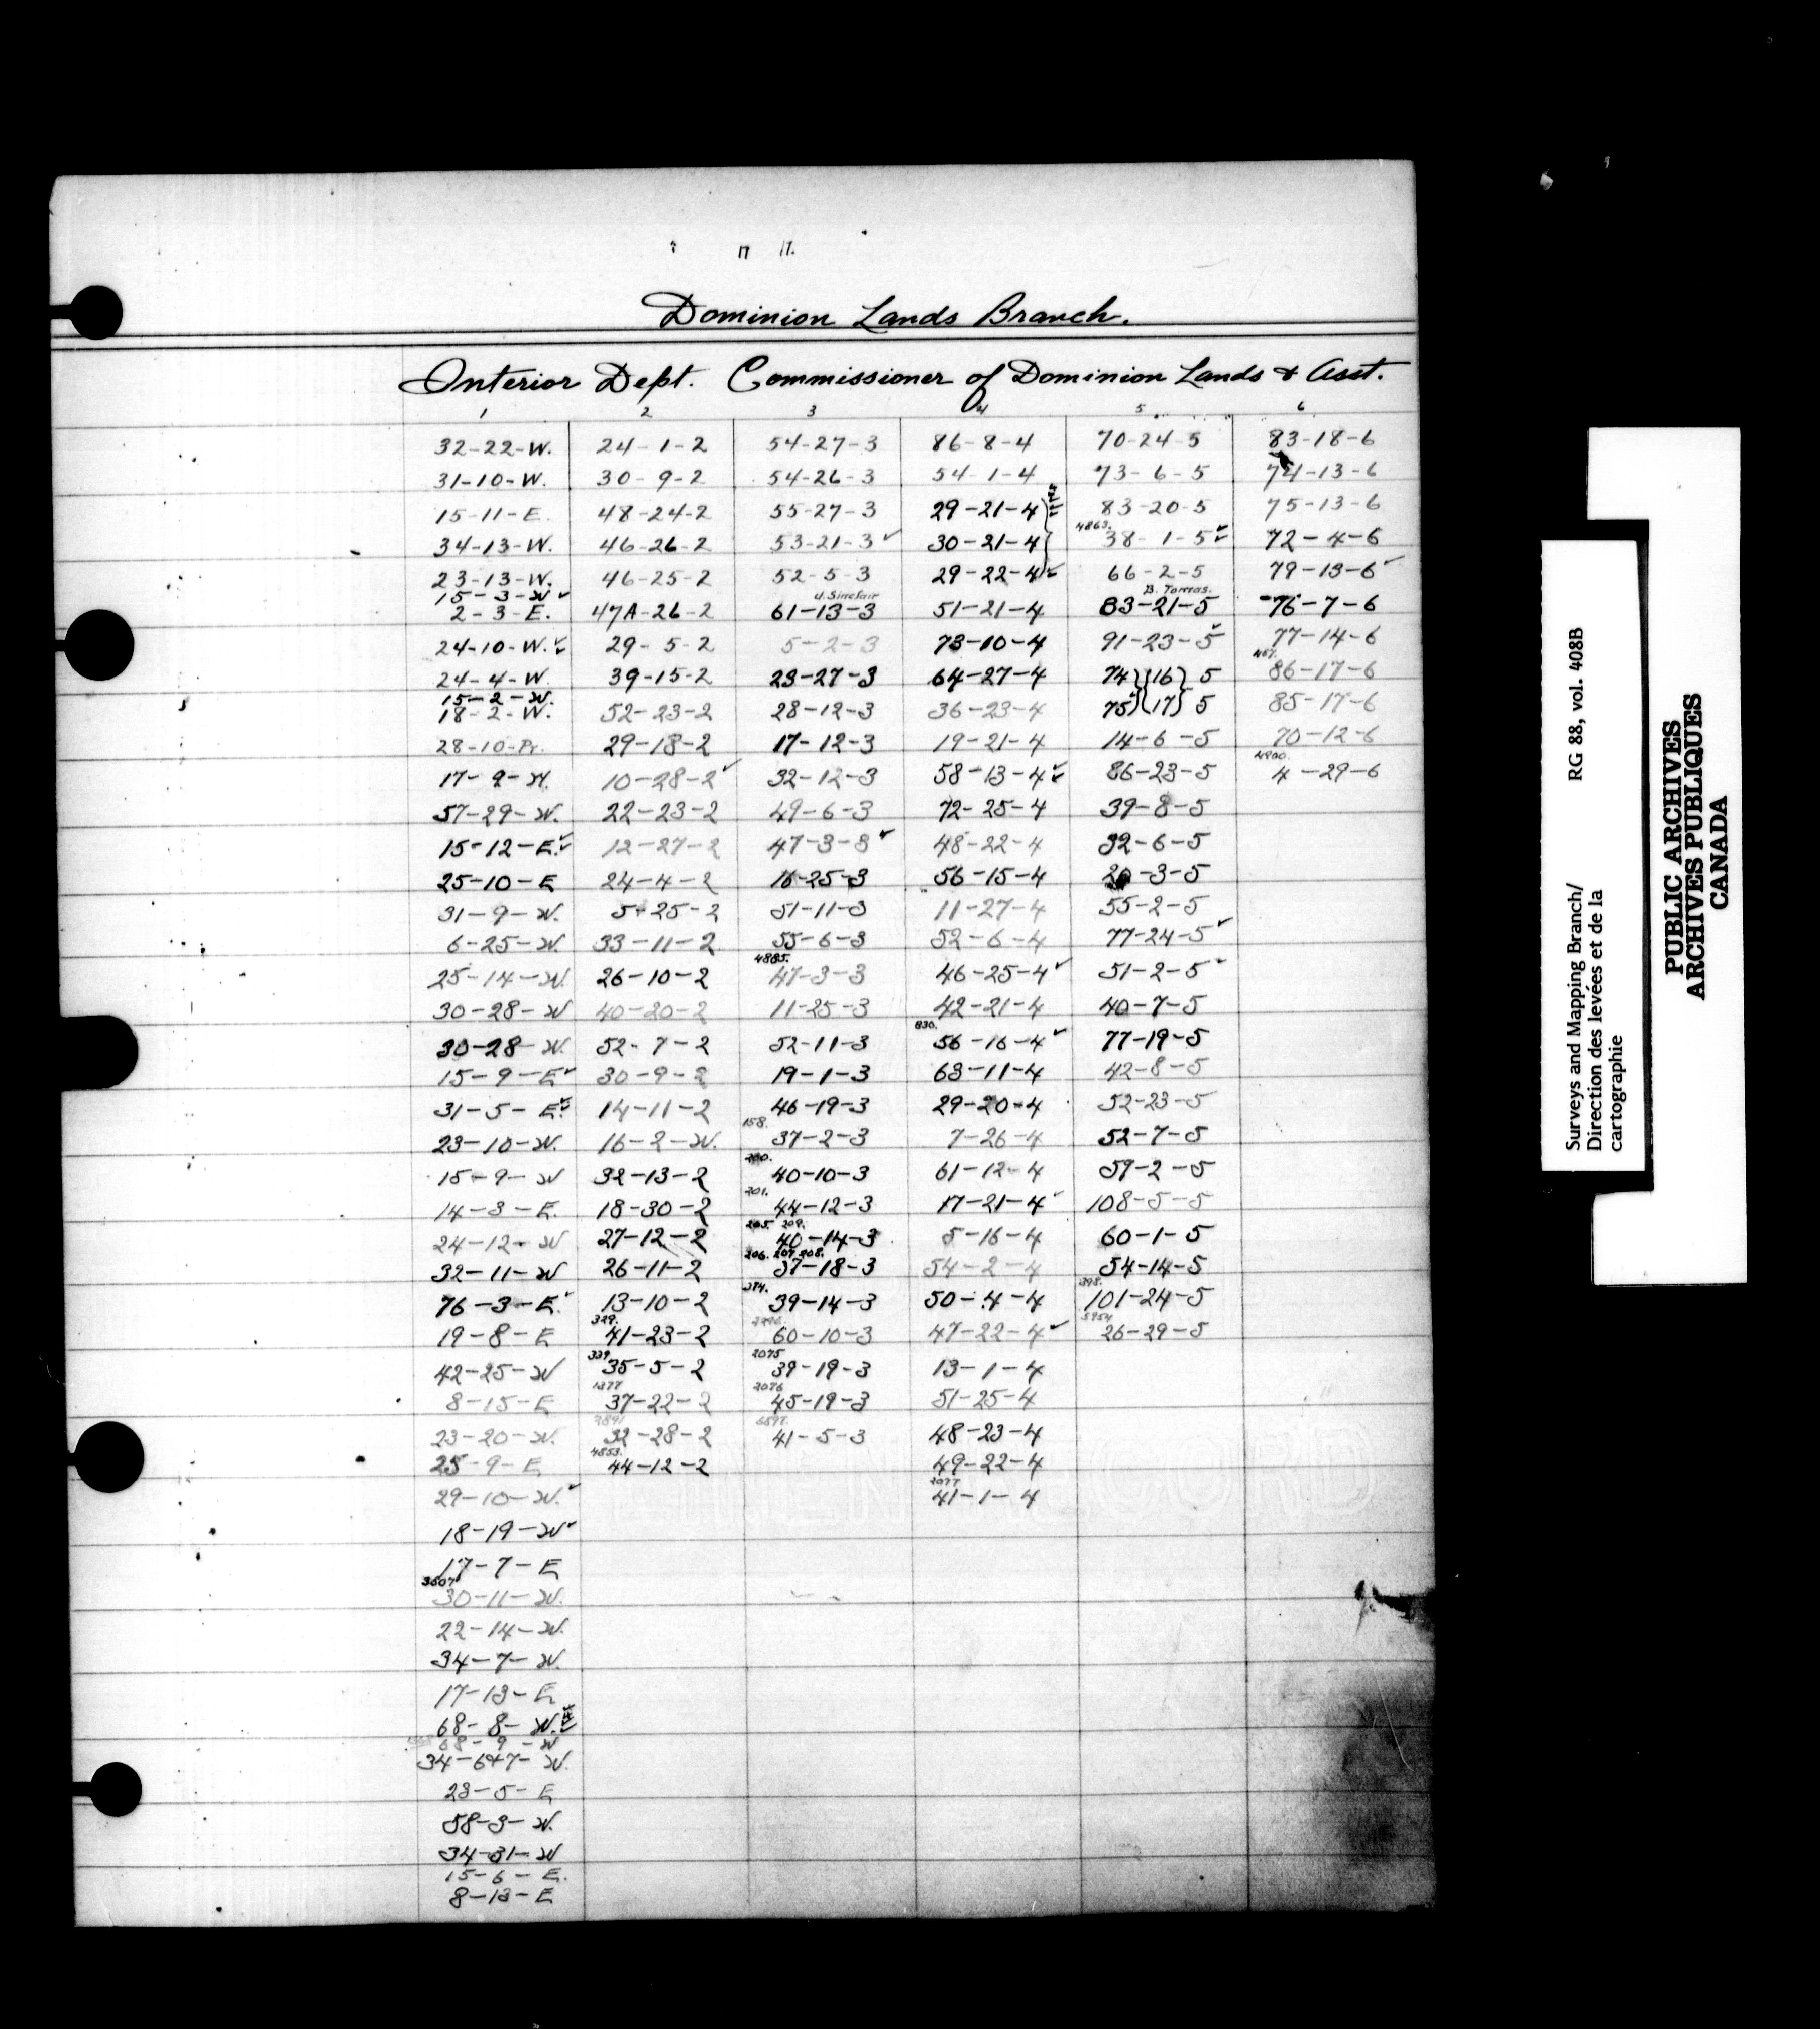 Dominion Lands Branch.
Interior Dept. Commissioner of Dominion Lands & Asst.
1 2 3 4 5 6
32-22-W. 24-1-2 54-27-3 86-8-4 70-24-5 83-18-6
31-10-W. 30-9-2 54-26-3 54-1-4 73-6-5 74-13-6
15-11-E. 48-24-2 55-27-3 29-21-4 83-20-5 75-13-6
34-13-W. 46-26-2 53-21-3 ✓ 30-21-4 4863. 38-1-5 ✓ 72-4-6
23-13-W. 46-25-2 52-5-3 29-22-4 ✓ 66-2-5 79-13-6 ✓
15-3-W ✓
2-3-E. 47A-26-2 J. Sinclair 61-13-3 51-21-4 B. Torras. 83-21-5 76-7-6
24-10-W. ✓ 29-5-2 5-2-3 73-10-4 91-23-5 ✓ 77-14-6
24-4-W. 39-15-2 23-27-3 64-27-4 74}{16} 5 467. 86-17-6
15-2-W.
18-2-W. 52-23-2 28-12-3 36-23-4 75}{17} 5 85-17-6
28-10-Pr. 29-18-2 17-12-3 19-21-4 14-6-5 70-12-6
17-9-W. 10-28-2 ✓ 32-12-3 58-13-4 ✓ 86-23-5 4900. 4-29-6
57-29-W. 22-23-2 49-6-3 72-25-4 39-8-5
15-12-E. ✓ 12-27-2 47-3-3 ✓ 48-22-4 32-6-5
25-10-E 24-4-2 16-25-3 56-15-4 20-3-5
31-9-W. 5-25-2 51-11-3 11-27-4 55-2-5
6-25-W. 33-11-2 55-6-3 52-6-4 77-24-5 ✓
25-14-W. 26-10-2 4885. 47-3-3 46-25-4 ✓ 51-2-5 ✓
30-28-W 40-20-2 11-25-3 42-21-4 40-7-5
30-28-W. 52-7-2 52-11-3 830. 56-16-4 ✓ 77-19-5
15-9-E ✓ 30-9-2 19-1-3 63-11-4 42-8-5
31-5-E. ✓ 14-11-2 46-19-3 29-20-4 52-23-5
23-10-W. 16-2-W. 158. 37-2-3 7-26-4 52-7-5
15-9-W 32-13-2 200. 40-10-3 61-12-4 59-2-5
14-3-E. 18-30-2 201. 44-12-3 17-21-4 ✓ 108-5-5
24-12-W 27-12-2 205. 209. 40-14-3 5-16-4 60-1-5
32-11-W 26-11-2 206. 207. 208. 37-18-3 54-2-4 54-14-5
76-3-E. ✓ 13-10-2 374. 39-14-3 50-4-4 398. 101-24-5
19-8-E 329. 41-23-2 60-10-3 47-22-4 ✓ 5954 26-29-5
42-25-W 339. 35-5-2 2075 39-19-3 13-1-4
8-15-E 1377 37-22-2 2076 45-19-3 51-25-4
23-20-W. 3891 32-28-2 6897. 41-5-3 48-23-4
25-9-E 4853. 44-12-2 49-22-4
29-10-W. ✓ 2077 41-1-4
18-19-W ✓
17-7-E
3607
30-11-W.
22-14-W.
34-7-W.
17-13-E
68-8-W. ✓
68-9-W
34-6&7-W.
23-5-E
58-3-W.
34-31-W
15-6-E.
8-13-E
Surveys and Mapping Branch/ RG 88, vol. 408B
Direction des levées et de la
cartographie
PUBLIC ARCHIVES
ARCHIVES PUBLIQUES
CANADA